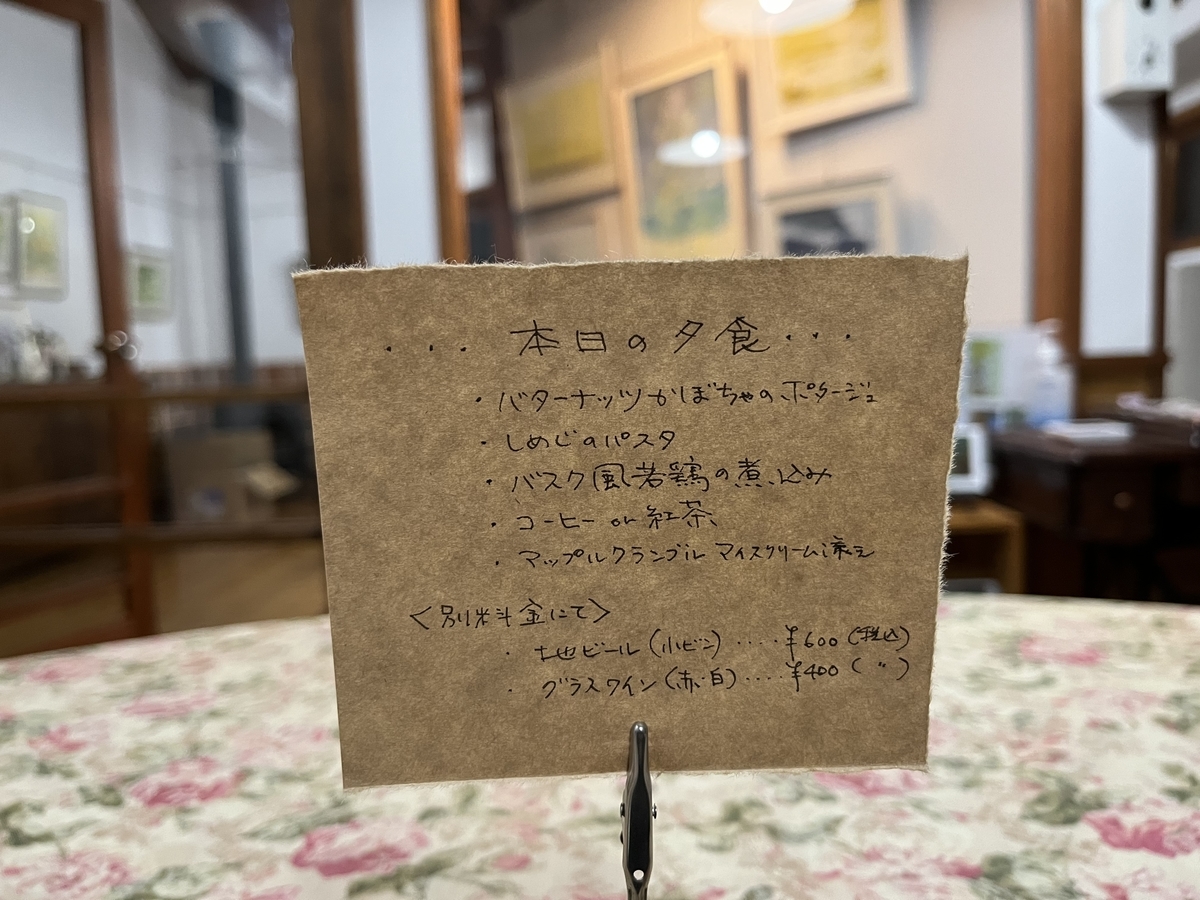 ・・・ 本日の夕食・・・
・バターナッツかぼちゃのポタージュ
・しめじのパスタ
・バスク風若鶏の煮込み
・コーヒー or 紅茶
・マップルクランブル マイスクリーム添え
<別料金にて>
・地ビール(小ビン)‥‥¥600(税込)
・グラスワイン(赤・白)‥‥¥400(〃)